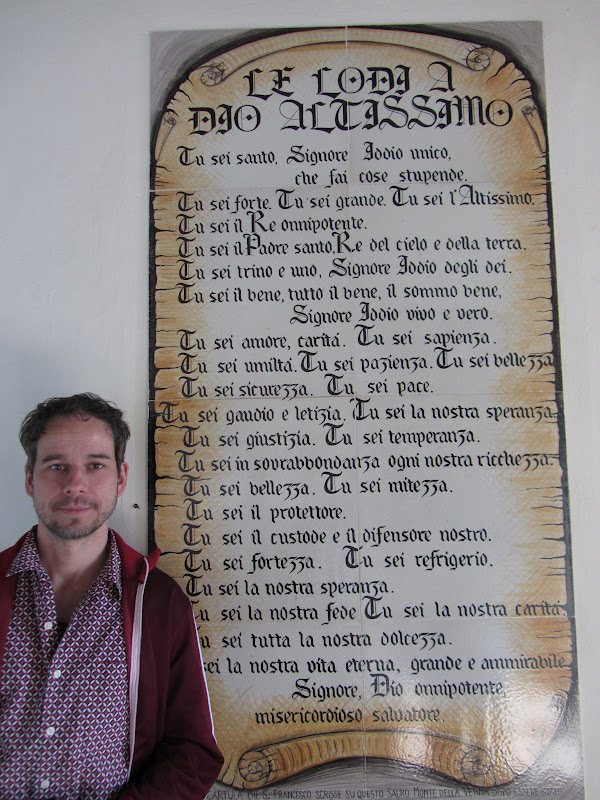 LE LODI A
DIO ALTISSIMO
Tu sei santo, Signore Iddio unico,
che fai cose stupende.
Tu sei forte. Tu sei grande. Tu sei l'Altissimo.
Tu sei il Re onnipotente.
Tu sei il Padre santo, Re del cielo e della terra.
Tu sei trino e uno, Signore Iddio degli dei.
Tu sei il bene, tutto il bene, il sommo bene,
Signore Iddio vivo e vero.
Tu sei amore, caritá. Tu sei sapienza.
Tu sei umiltá. Tu sei pazienza. Tu sei bellezza.
Tu sei sicurezza. Tu sei pace.
Tu sei gaudio e letizia. Tu sei la nostra speranza.
Tu sei giustizia. Tu sei temperanza.
Tu sei in sovrabbondanza ogni nostra ricchezza.
Tu sei bellezza. Tu sei mitezza.
Tu sei il protettore.
Tu sei il custode e il difensore nostro.
Tu sei fortezza. Tu sei refrigerio.
Tu sei la nostra speranza.
sei la nostra fede Tu sei la nostra caritá
sei tutta la nostra dolcezza.
sei la nostra vita eterna, grande e ammirabile
Signore, Dio onnipotente,
misericordioso salvatore.
CARTULA CHE S. FRANCESCO SCRISSE SU QUESTO SACRO MONTE DELLA VERNA DOPO ESSERE